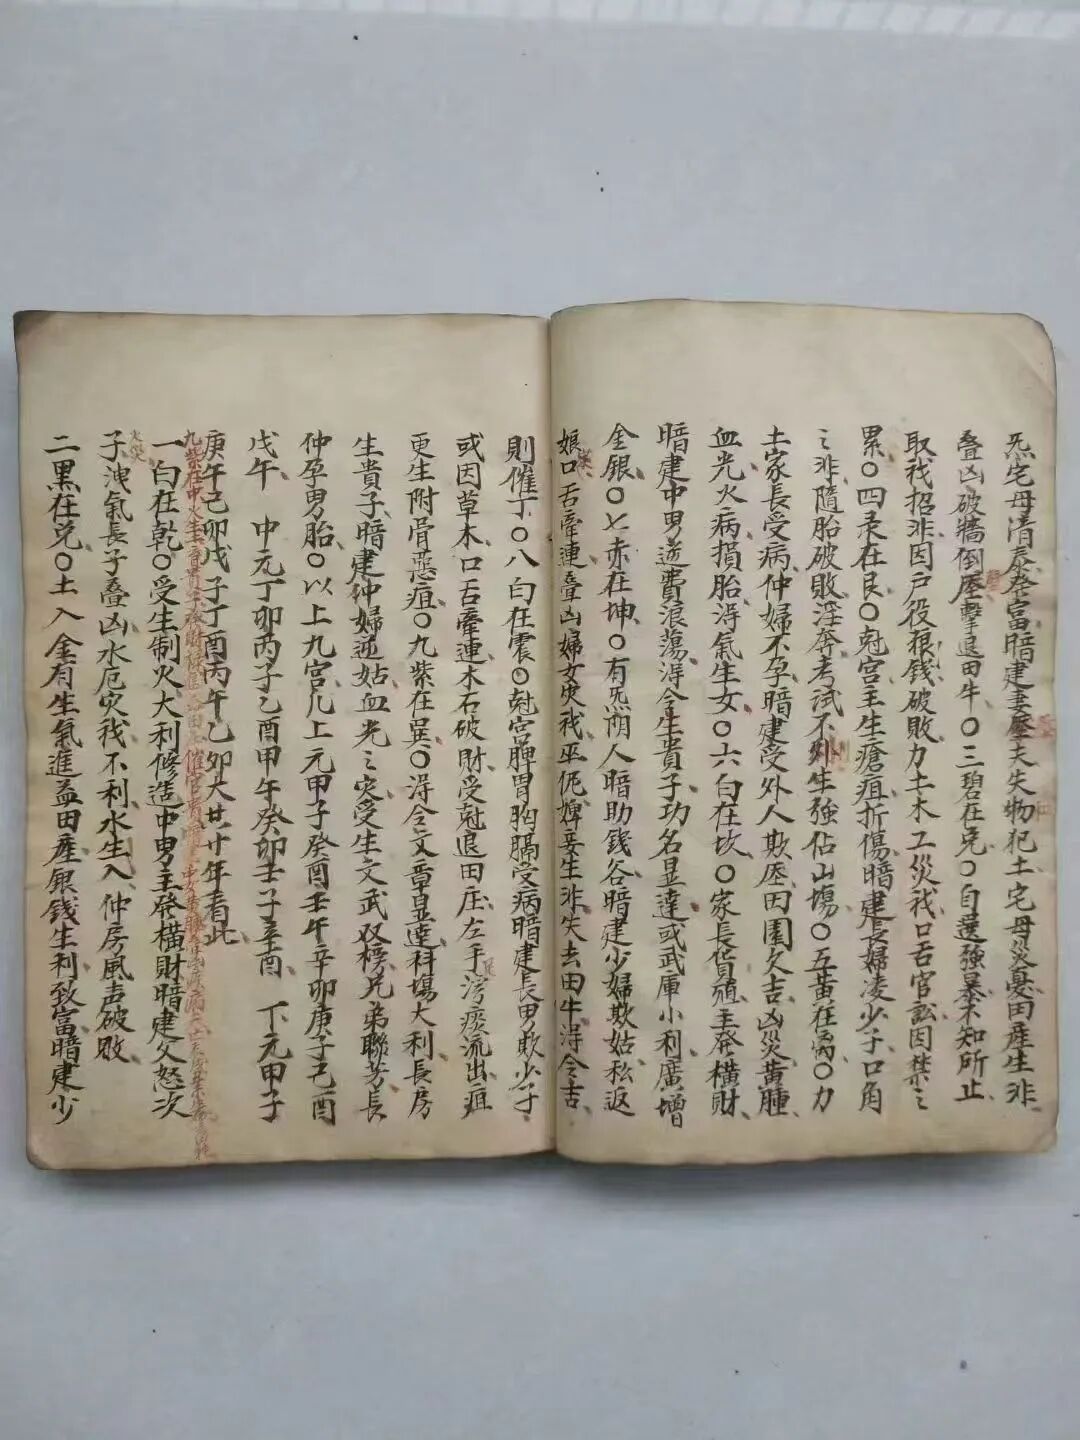 炁宅母清泰発富暗建妻壓夫失物犯土宅母災憂田産生非
叠凶破牆倒壓擊退田牛〇三碧在兌〇自逞強暴不知所止
取我招非因戸役粮錢破敗力土木工災我口舌官訟囚禁之
累〇四彔在艮〇尅宮主生瘡疽折傷暗建長婦凌少子口角
之非隨胎破敗淫奔考試不外生強佔山塲〇五黃在离〇力
土家長受病仲婦不孕暗建受外人欺壓田園欠吉凶災黃腫
血光火病損胎淂氣生女〇六白在坎〇家長貨殖主発橫財
暗建中男逆費浪蕩淂令生貴子功名显達或武庫小利廣增
金銀〇七赤在坤〇有炁阴人暗助錢谷暗建少婦欺姑私返
娘口舌牽連叠凶婦女災我巫伲婢妾生非失去田牛淂令吉
則催丁〇八白在震〇尅宮脾胃胸膈受病暗建長男欺少子
或因草木口舌牽連木石破財受尅退田庄左手湾痰流出疽
更生附骨惡疽〇九紫在巽〇淂令文章显達科塲大利長房
生貴子暗建仲婦逆姑血光之灾受生文武双榜兄弟聯芳長
仲孕男胎〇以上九宮几上元甲子癸酉壬午辛卯庚子己酉
戊午 中元丁卯丙子乙酉甲午癸卯壬子辛酉 下元甲子
庚午己卯戊子丁酉丙午乙卯大廿廾年看此
九紫在中火生
一白在乾〇受生制火大利修造中男主發橫財暗建父怒次
子洩氣長子叠凶水厄灾我不利水生入仲房風声破敗
二黑在兌〇土入金有生氣進益田産銀錢生利致富暗建少